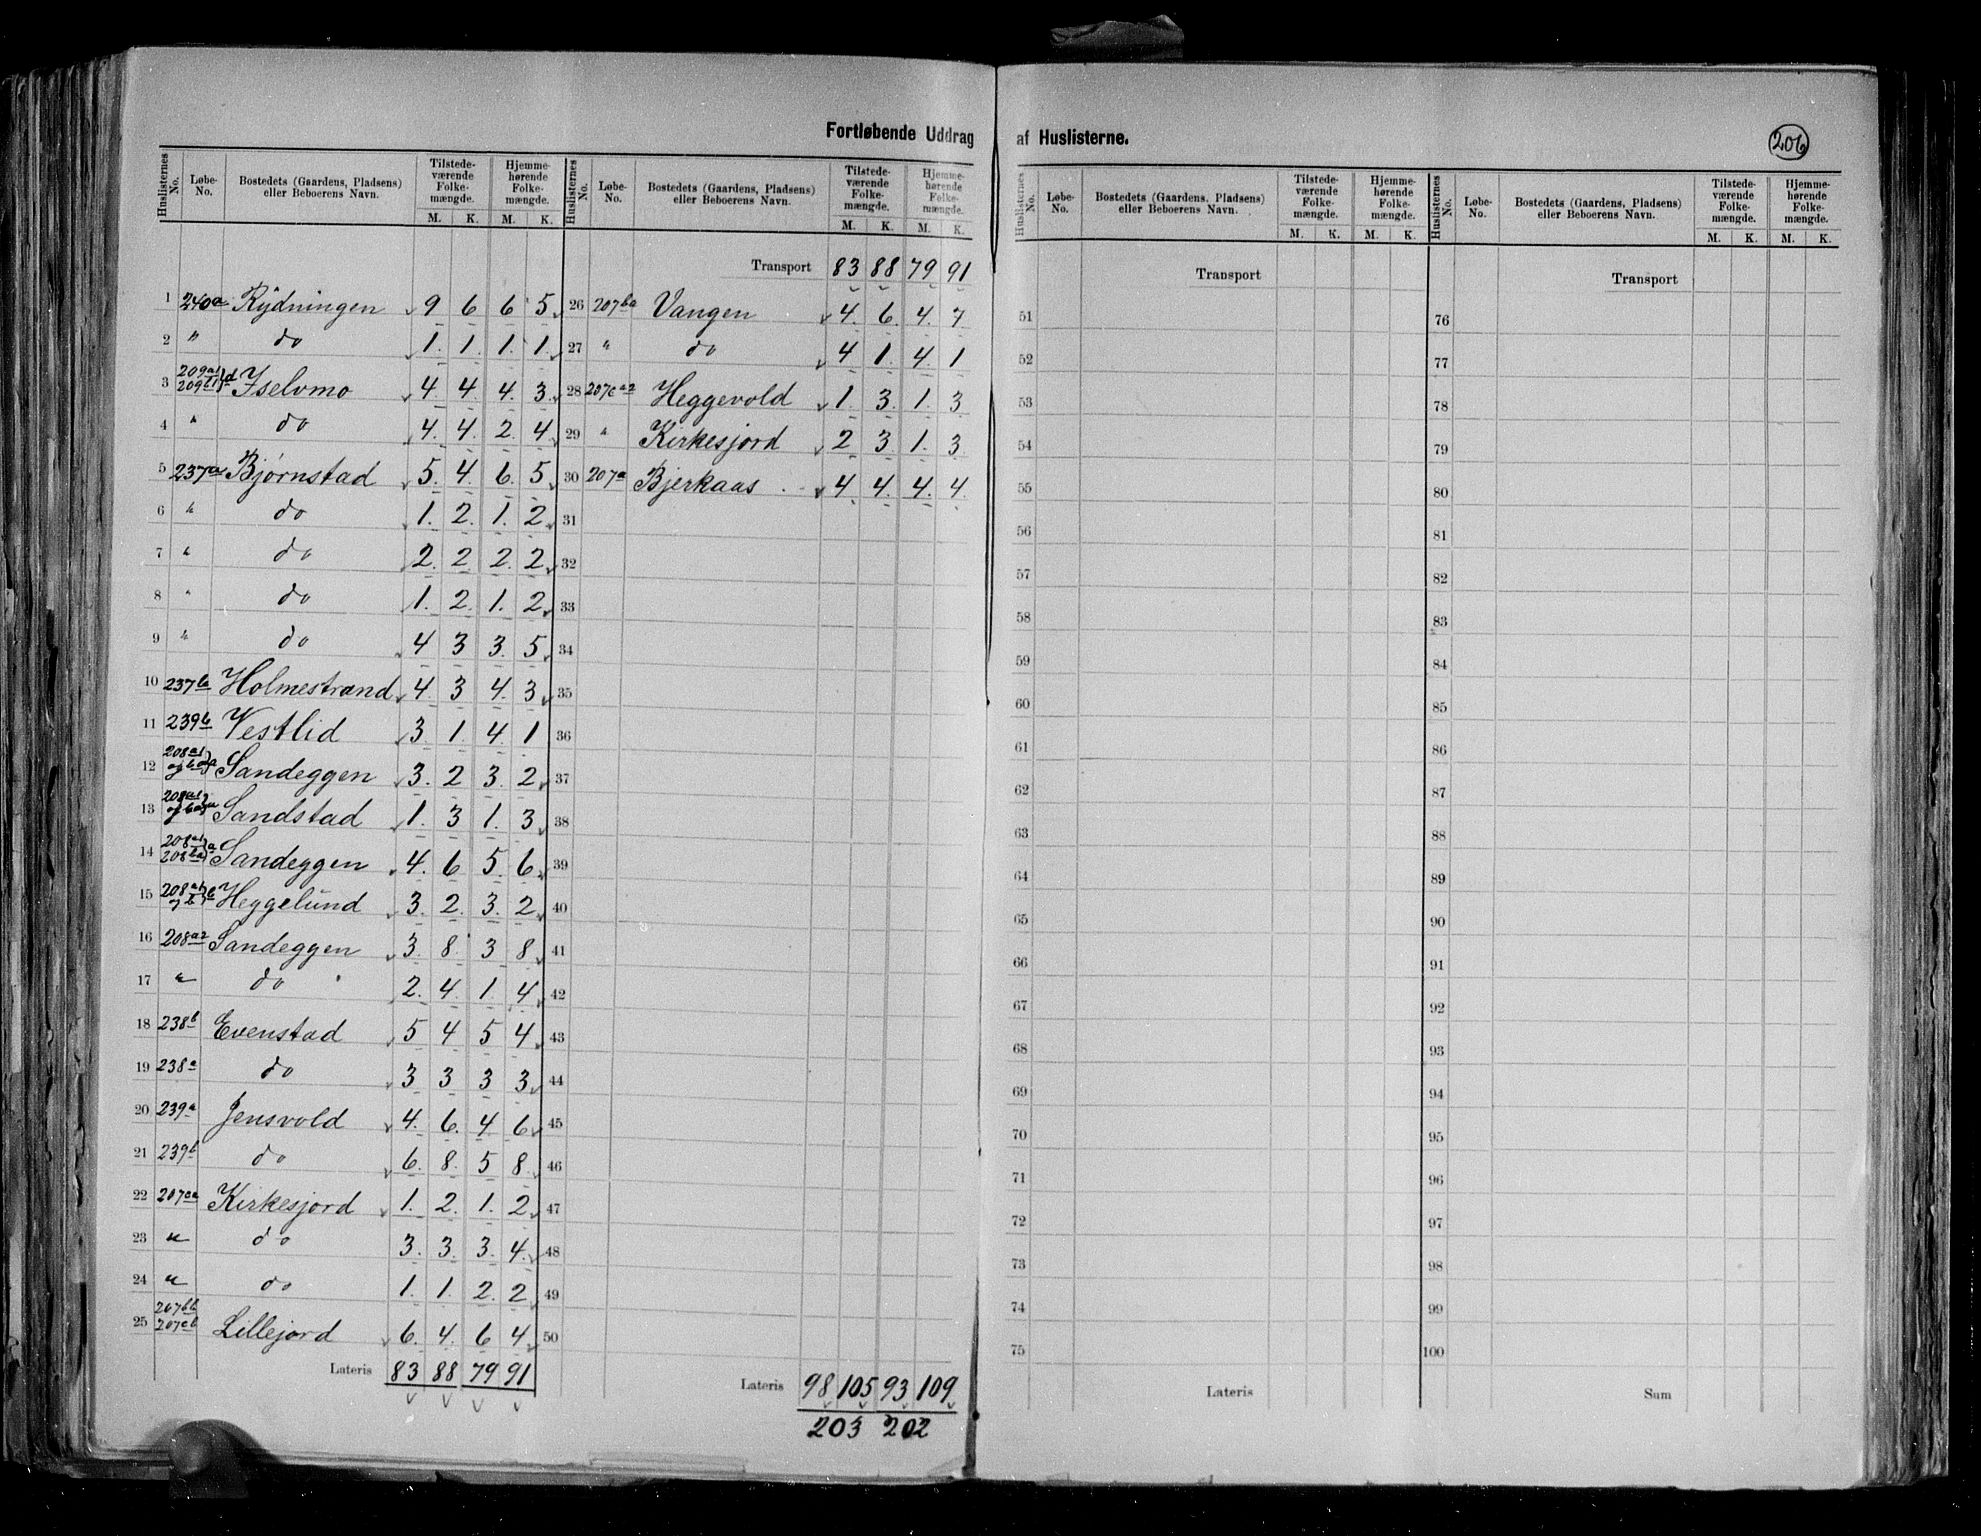 Fortløbende Uddrag af Huslisterne.
206
Huslisternes No. Løbe-No. Bostedets (Gaardens, Pladsens) eller Beboerens Navn. Tilstede-værende Folke-mængde. M. K. Hjemme-hørende Folke-mængde. M. K.
1 240a Rydningen 9 6 6 5
2 " do 1. 1. 1. 1.
3 209a1 209b1 d Iselvmo 4. 4. 4. 3.
4 " do 4. 4. 2. 4
5 237a Bjørnstad 5. 4. 6. 5
6 " do 1. 2. 1. 2.
7 " do 2. 2. 2. 2
8 " do 1. 2. 1. 2.
9 " do 4 3 3. 5
10 237b Holmestrand 4. 3 4. 3
11 239b Vestlid 3. 1. 4. 1
12 208a1 og ba a Sandeggen 3. 2 3. 2
13 208a1 og ba a Sandstad 1. 3 1. 3
14 208a1 208ba a Sandeggen 4. 6 5 6
15 208a1 og b b Heggelund 3. 2. 3. 2
16 208a2 Sandeggen 3. 8. 3 8
17 " do 2. 4. 1. 4
18 238b Evenstad 5 4 5 4
19 238a do 3 3 3 3
20 239a Jensvold 4. 6. 4 6
21 239b do 6. 8. 5 8
22 207ca Kirkesjord 1. 2. 1. 2
23 " do 3. 3. 3. 4.
24 " do 1. 1. 2. 2
25 207bb 207cb Lillejord 6. 4. 6 4
Lateris 83 88 79 91
Huslisternes No. Løbe-No. Bostedets (Gaardens, Pladsens) eller Beboerens Navn. Tilstede-værende Folke-mængde. M. K. Hjemme-hørende Folke-mængde. M. K.
Transport 83 88 79 91
26 207ba Vangen 4. 6. 4. 7
27 " do 4 1. 4 1
28 207ca2 Heggevold 1. 3 1. 3
29 " Kirkesjord 2 3 1. 3
30 207a Bjerkaas 4 4. 4. 4.
31
32
33
34
35
36
37
38
39
40
41
42
43
44
45
46
47
48
49
50
Lateris 98 105 93 109
203 202
Huslisternes No. Løbe-No. Bostedets (Gaardens, Pladsens) eller Beboerens Navn. Tilstede-værende Folke-mængde. M. K. Hjemme-hørende Folke-mængde. M. K.
Transport
51
52
53
54
55
56
57
58
59
60
61
62
63
64
65
66
67
68
69
70
71
72
73
74
75
Lateris
Huslisternes No. Løbe-No. Bostedets (Gaardens, Pladsens) eller Beboerens Navn. Tilstede-værende Folke-mængde. M. K. Hjemme-hørende Folke-mængde. M. K.
Transport
76
77
78
79
80
81
82
83
84
85
86
87
88
89
90
91
92
93
94
95
96
97
98
99
100
Sum